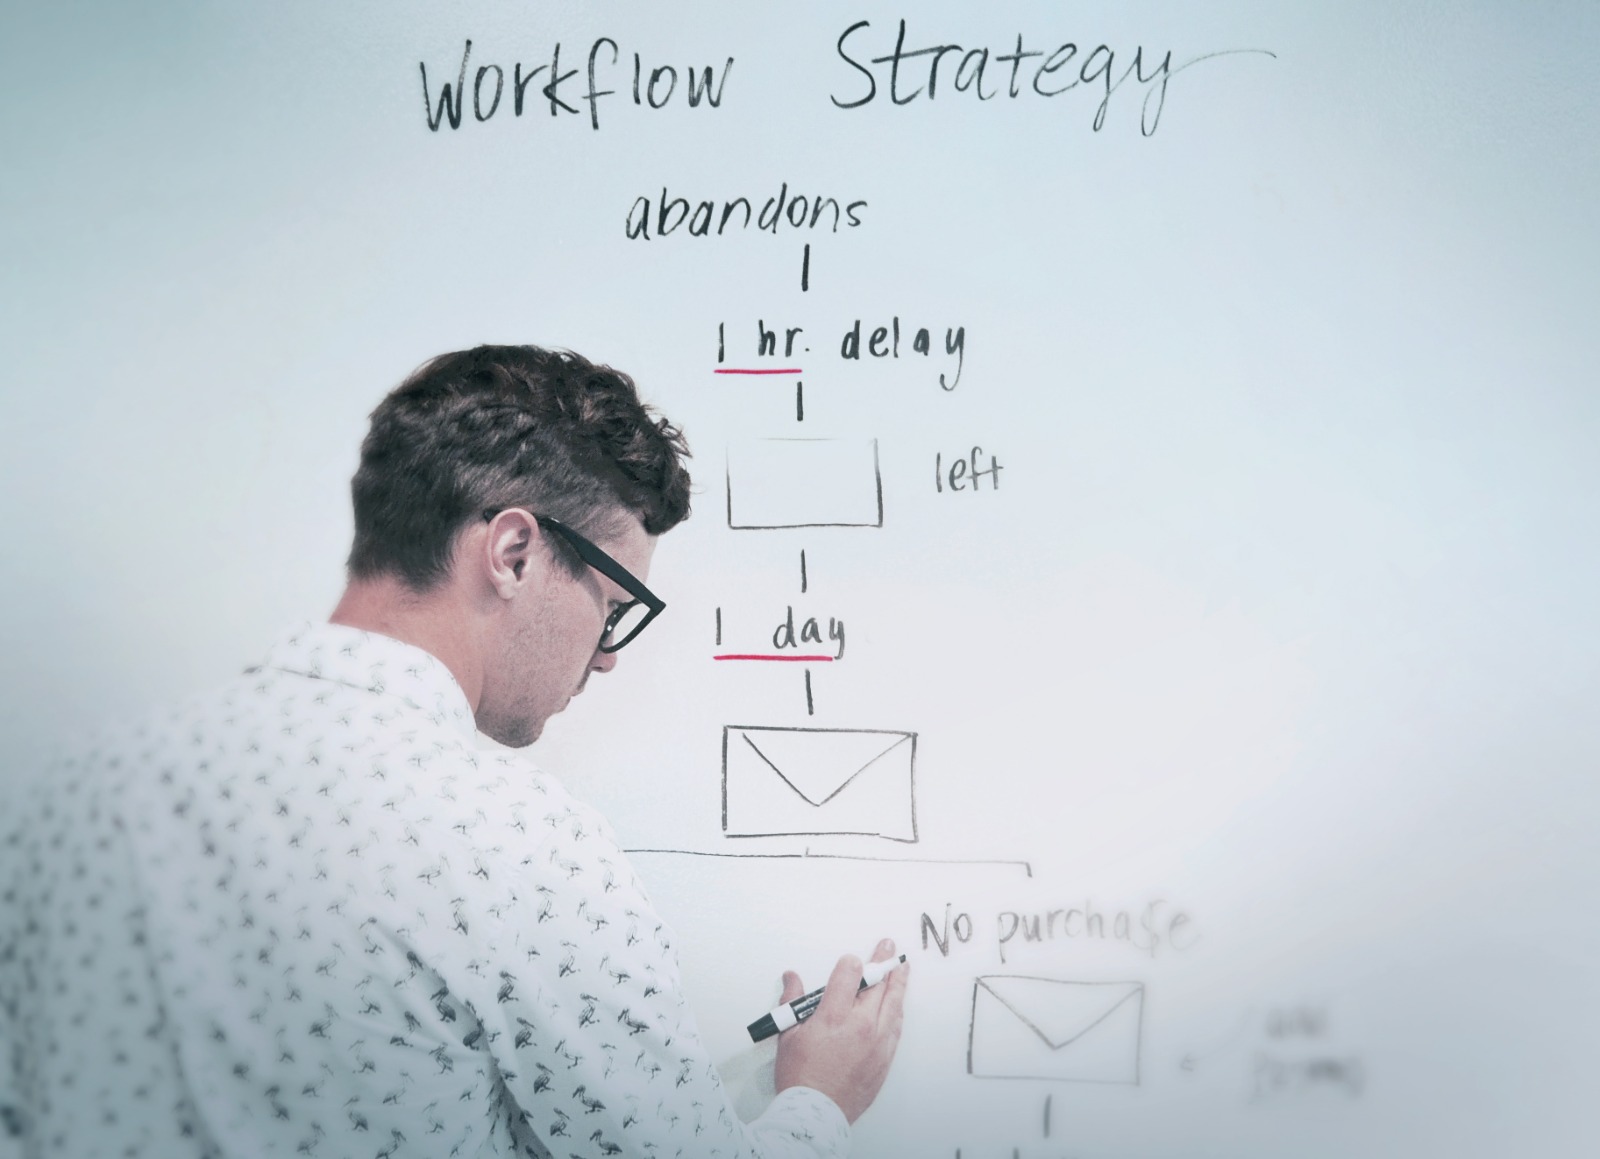 Workflow Strategy
abandons
1 hr. delay
left
1 day
No purchase